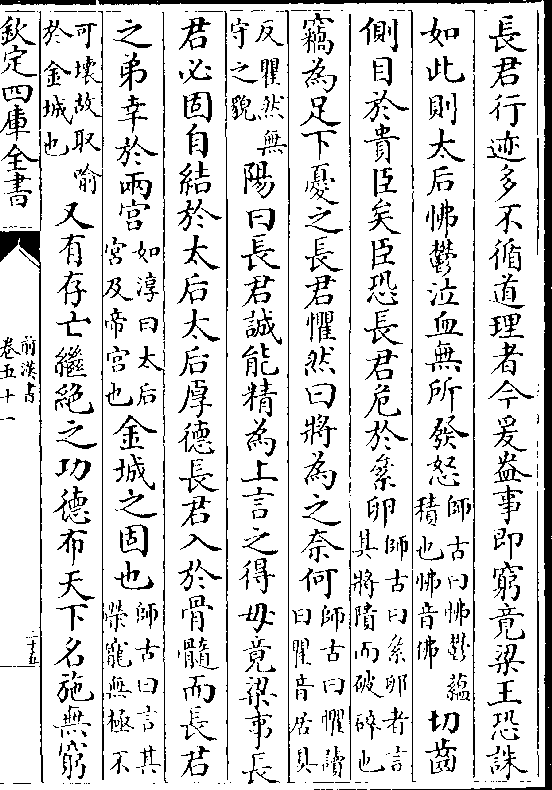 長君行迹多不循道理者今爰盎事即窮竟梁王恐誅
如此則太后怫鬱泣血無所發怒師古曰怫鬱蘊積也怫音佛切齒
側目於貴臣矣臣恐長君危於絫卵師古曰絫卵者言其將隤而破碎也
竊為足下憂之長君懼然曰將為之奈何師古曰懼讀曰瞿音居具
反瞿然無守之貌陽曰長君誠能精為上言之得毋竟梁事長
君必固自結於太后太后厚德長君入於骨髓而長君
之弟幸於兩宮如淳曰太后宮及帝宮也金城之固也師古曰言其榮寵無極不
可壊故取喻於金城也又有存亡繼絶之功德布天下名施無窮
欽定四庫全書
前漢書
卷五十一
二十五